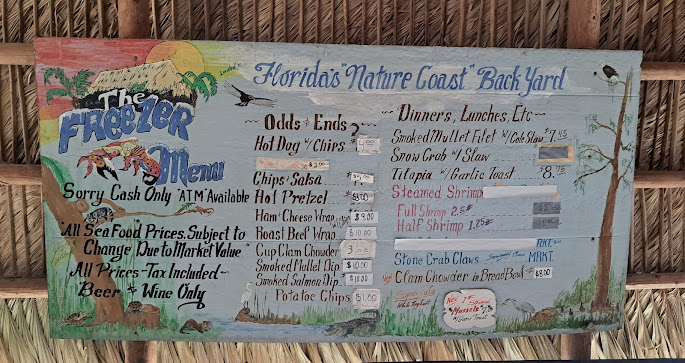 Florida's "Nature Coast" Back Yard
The
FREEZER
Menu
Sorry Cash Only "ATM" Available
"All Sea Food" Prices Subject to
Change "Due to Market Value"
All Prices-Tax Included-
Beer & Wine Only
~ Odds & Ends ~
Hot Dog w/ Chips
Chips & Salsa
Hot Pretzel
Ham & Cheese Wrap $9.00
Roast Beef Wrap $10.00
Cup Clam Chowder
Smoked Mullet Dip $10.00
Smoked Salmon Dip $10.00
Potatoe Chips $1.00
~ Dinners, Lunches, Etc ~
Smoked Mullet Filet w/ Cole Slaw $7.95
Snow Crab w/ Slaw
Tilapia w/ Garlic Toast
Steamed Shrimp
Full Shrimp 2.5#
Half Shrimp 1.25#
MKT.
Stone Crab Claws MRKT.
Clam Chowder in Bread Bowl $8.00
New
Mussels